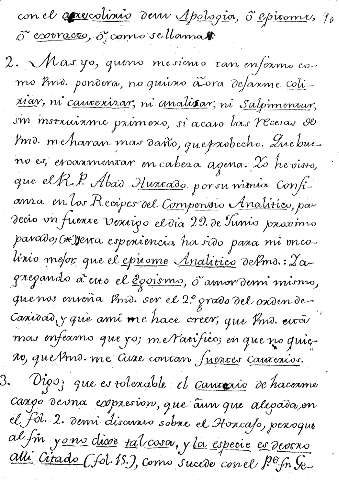 con el colirio de mi Apologia, ô epitome,
ô extracto, ô, como se llama.
2. Mas yo, que no me siento tan enfermo co-
mo Vmd. pondera, no quiero aora dexarme coli-
riar, ni cauterizar, ni analizar, ni Salpimentar,
sin instruirme primero, si acaso las recetas de
Vmd. me haran mas daño, que probecho. Que bue-
no es, escarmentar en cabeza agena. Yo he visto,
que el R. P. Abad Hurtado, por su nimia Confi-
anza en los Recipes del Compendio Analitico, pa-
decio un fuerte vertigo el dia 22. de Junio proximo
pasado; esta esperiencia ha sido para mi un co-
lirio mejor que el epitome Analitico de Vmd.: I a-
gregando â esto el Egoismo, ô amor de mi mismo,
que nos enseña Vmd. ser el 2º grado del orden de
Caridad, y que ami me hace creer, que Vmd. está
mas enfermo que yo; me ratifico; en que no quie-
ro, que Vmd. me Cure con tan fuertes Cauterios.
3. Digo; que es tolerable el Cauterio de hacerme
cargo de una expresion, que aun que alegada, en
el fol. 2. de mi discurso sobre el Horcajo, pero que
al fin yo no dice tal cosa, y la especie es de otro
alli Citado (fol. 15.), como sucede con el Pe. fr. Ge-